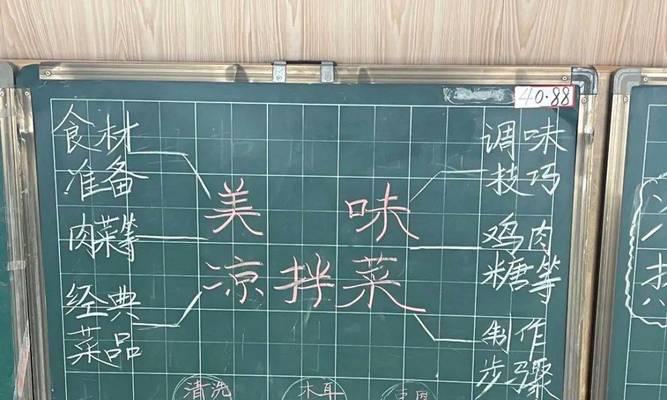 40.88
食材
准备
肉菜等
经典
菜品
美味
凉拌菜
调味
技巧
鸡肉
糖等
制作
步骤
清洗
木耳